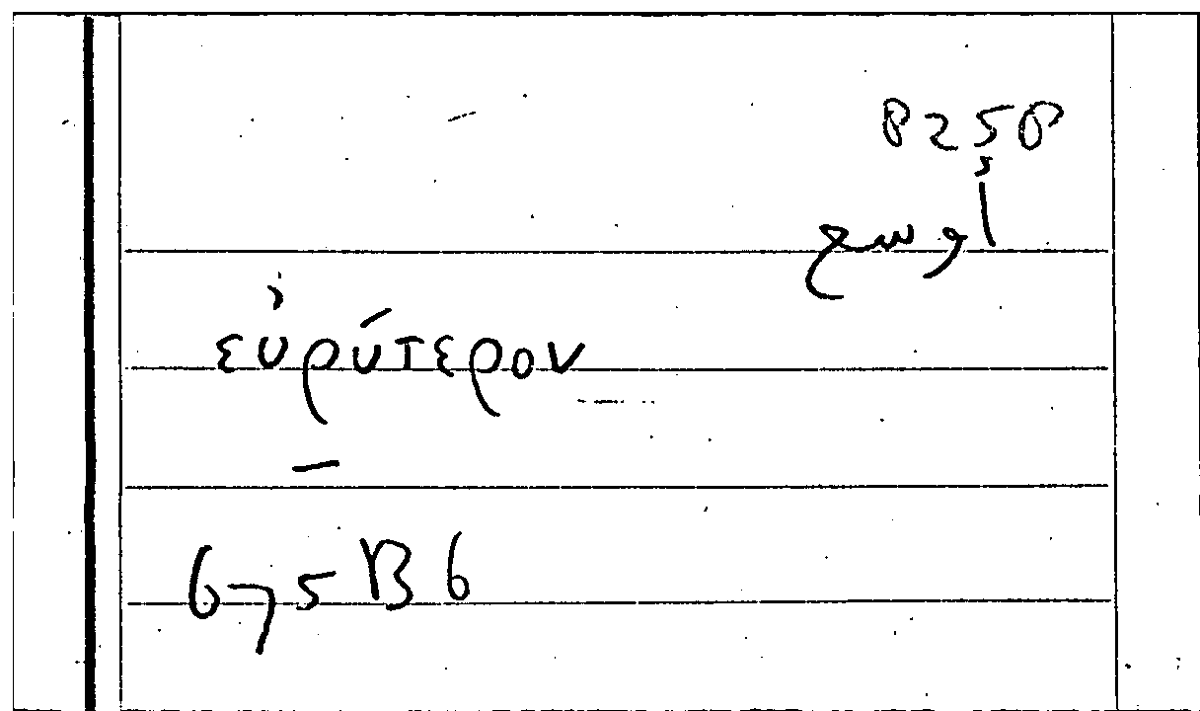 8258
أوسع
εὐρύτερον
675 B 6